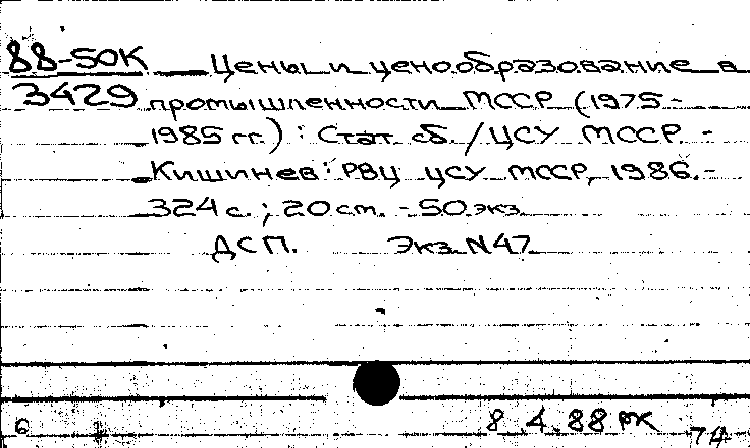 88-50К Цены и ценообразование в
3429 промышленности МССР (1975-
1985 гг.) : Стат. сб. / ЦСУ МССР. -
Кишинев : РВЦ ЦСУ МССР, 1986. -
324 с. ; 20 см. - 50 экз.
ДСП. Экз. N47
6 8.4.88 РК
74